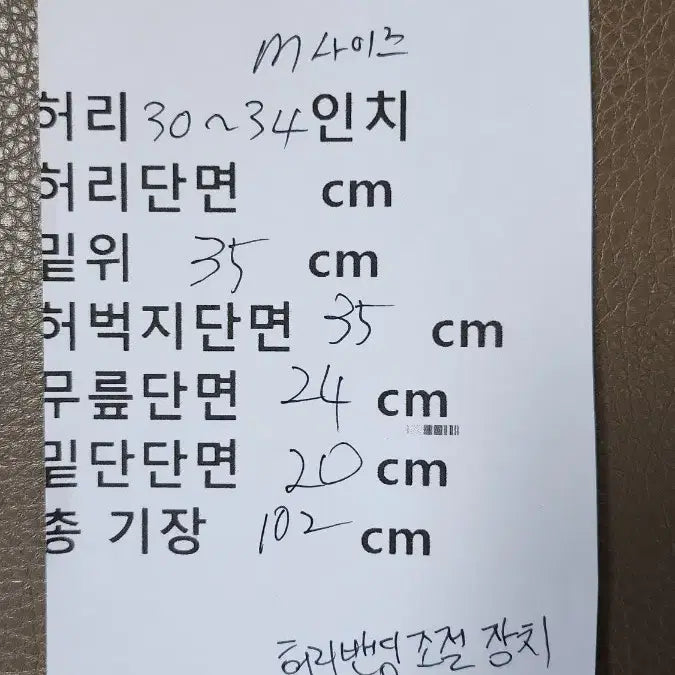 M사이즈
허리 30~34인치
허리단면 cm
밑위 35 cm
허벅지단면 35 cm
무릎단면 24 cm
밑단단면 20 cm
총 기장 102 cm
허리밴딩 조절 장치